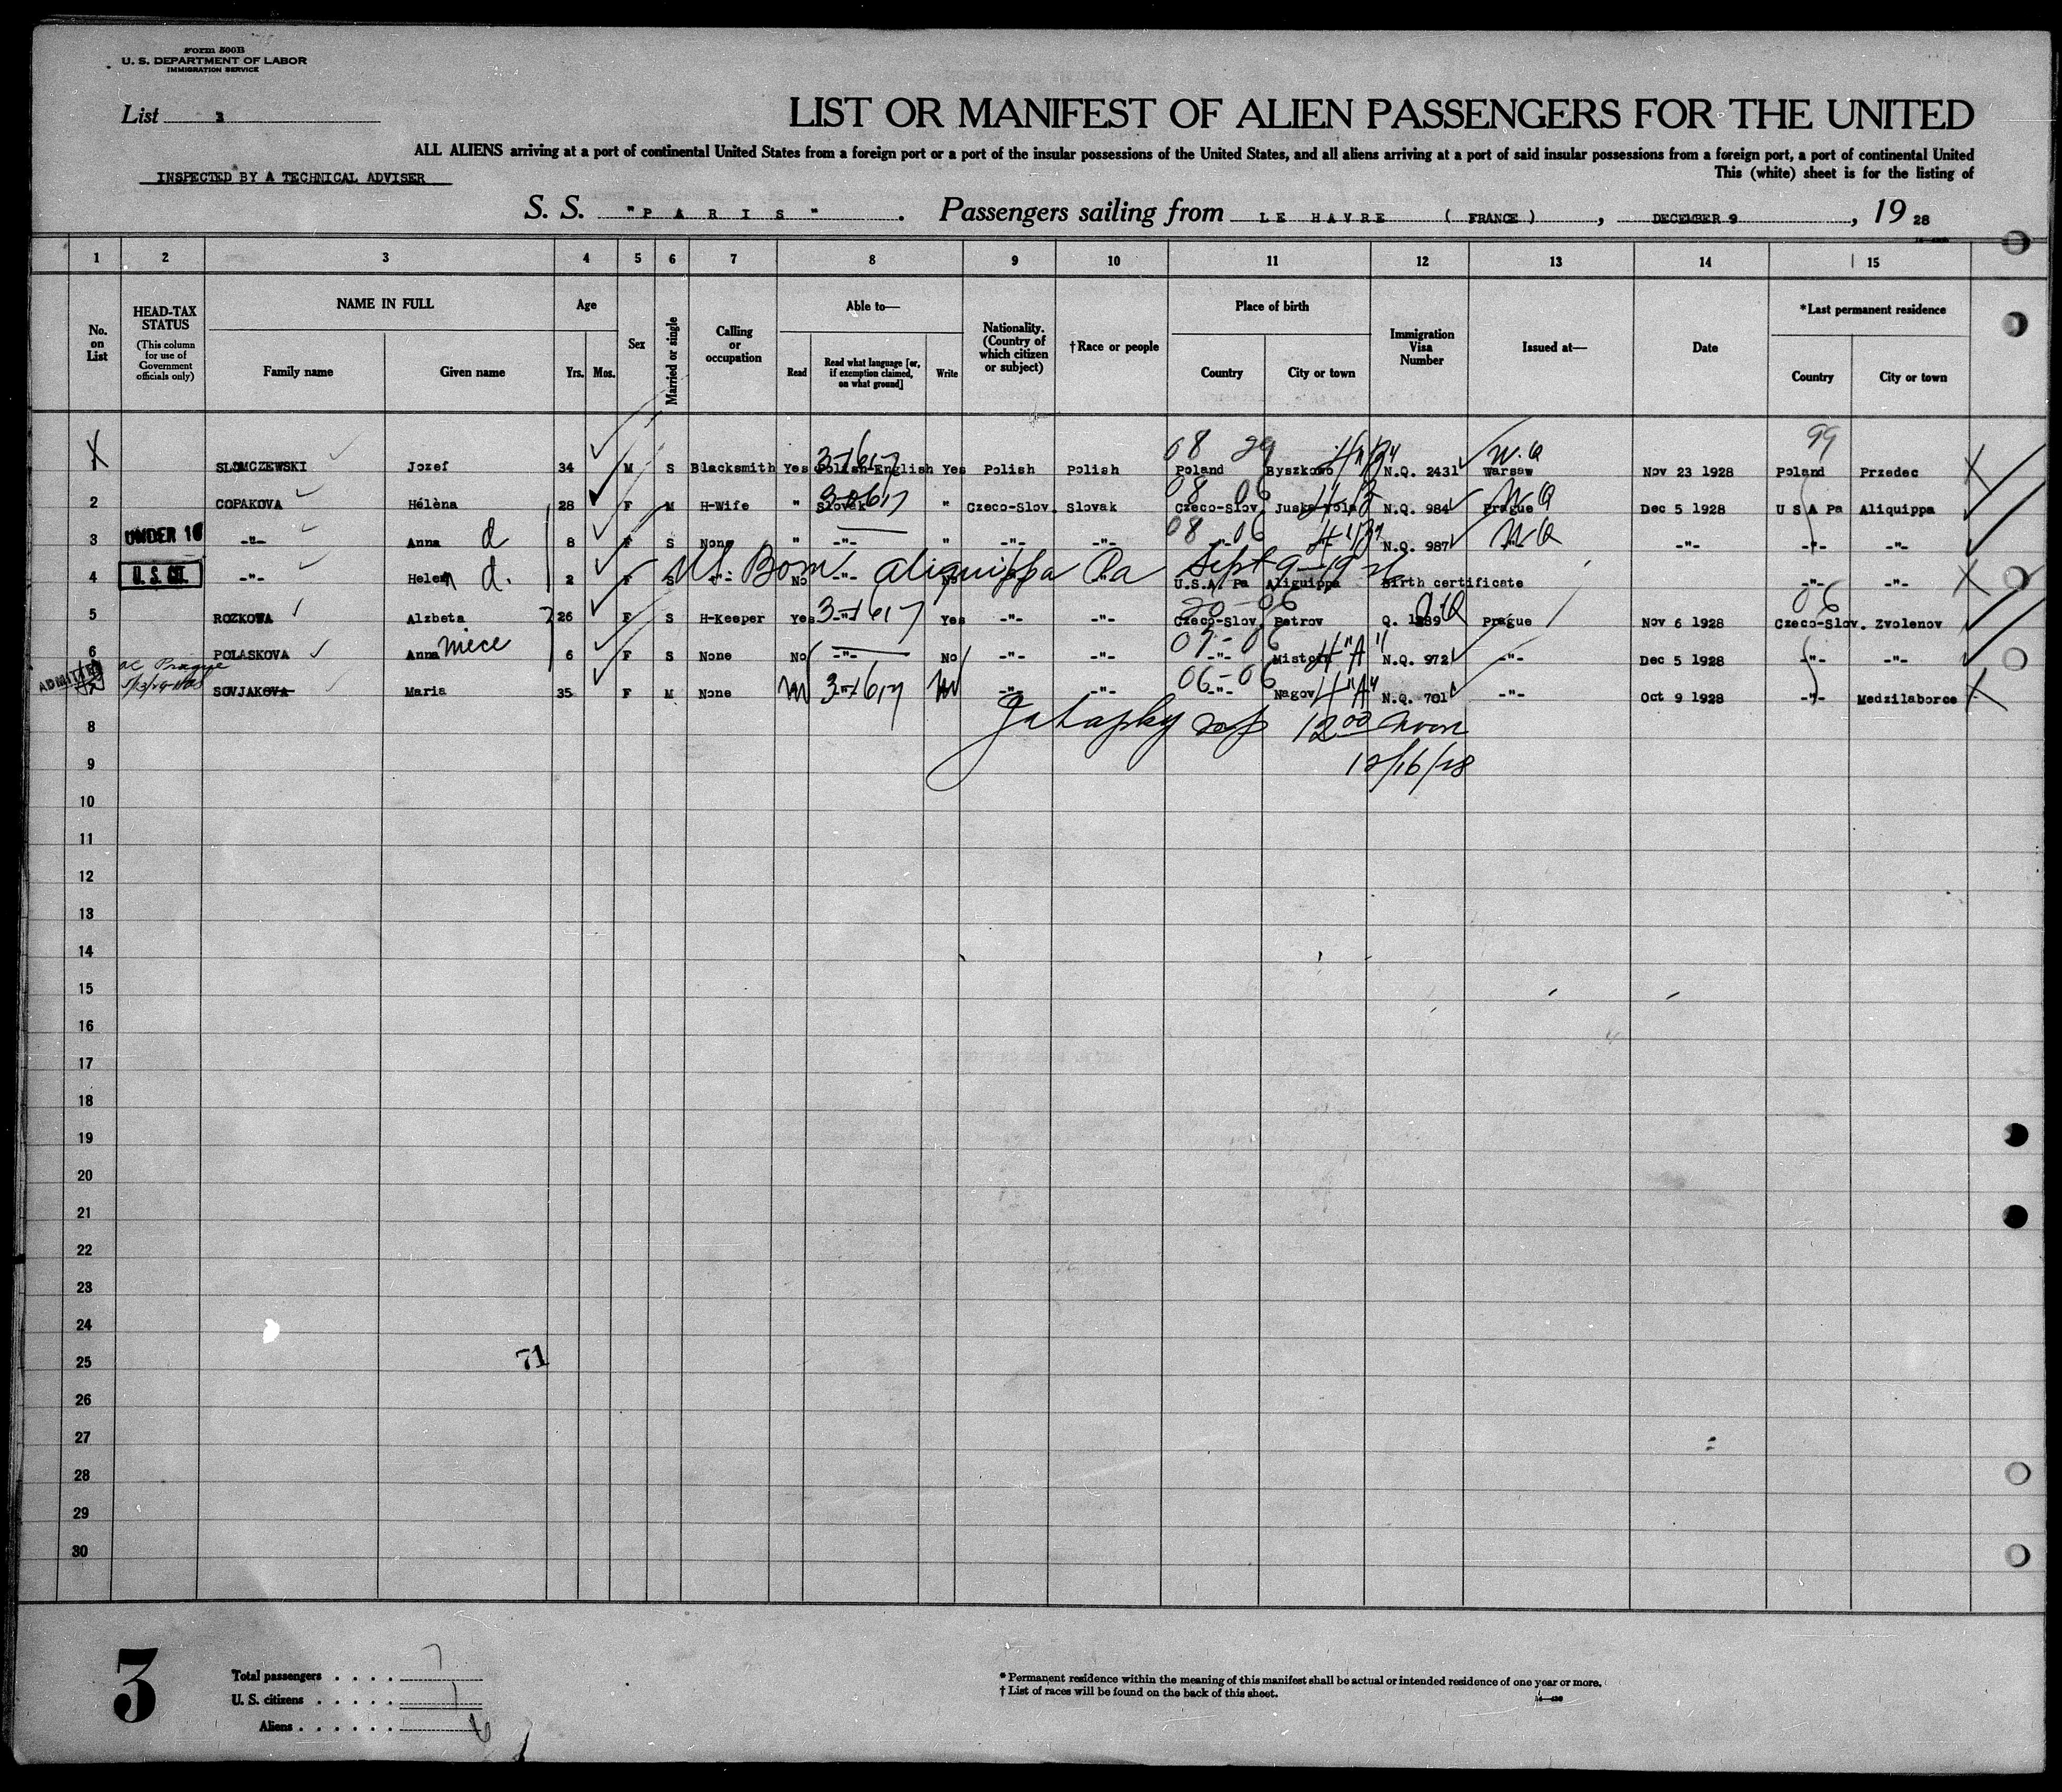 Form 500B
U. S. DEPARTMENT OF LABOR
IMMIGRATION SERVICE
List 3
LIST OR MANIFEST OF ALIEN PASSENGERS FOR THE UNITED
ALL ALIENS arriving at a port of continental United States from a foreign port or a port of the insular possessions of the United States, and all aliens arriving at a port of said insular possessions from a foreign port, a port of continental United
INSPECTED BY A TECHNICAL ADVISER
This (white) sheet is for the listing of
S. S. "PARIS". Passengers sailing from LE HAVRE (FRANCE), DECEMBER 9, 19 28
1 2 3 4 5 6 7 8 9 10 11 12 13 14 15
No. on List
HEAD-TAX STATUS (This column for use of Government officials only)
NAME IN FULL
Family name Given name
Age
Yrs. Mos.
Sex
Married or single
Calling or occupation
Able to—
Read Read what language [or, if exemption claimed, on what ground] Write
Nationality. (Country of which citizen or subject)
†Race or people
Place of birth
Country City or town
Immigration Visa Number
Issued at—
Date
*Last permanent residence
Country City or town
08 29 W.Q 99
1 SLOMCZEWSKI Jozef 34 M S Blacksmith Yes Polish-English Yes Polish Polish Poland Byszkowo N.Q. 2431 Warsaw Nov 23 1928 Poland Przedec
08 06 N Q
2 COPAKOVA Hélèna 28 F M H-Wife " Slovak " Czeco-Slov. Slovak Czeco-Slov. Juska Vola N.Q. 984 Prague Dec 5 1928 U S A Pa Aliquippa
08 06 N Q
3 UNDER 16 -"- Anna d 8 F S None " -"- " -"- -"- -"- N.Q. 987 -"- -"- -"- -"-
Born Aliquippa Pa Sept 9-1926
4 U. S. CIT. -"- Helen d. 2 F S -"- No -"- No U.S.A. Pa Aliquippa Birth certificate -"- -"-
20-06 06
5 ROZKOWA Alzbeta 26 F S H-Keeper Yes -"- Yes -"- -"- Czeco-Slov. Petrov Q. 1289 Prague Nov 6 1928 Czeco-Slov. Zvolenov
07-06
6 POLASKOVA Anna niece 6 F S None No -"- No -"- -"- -"- N.Q. 972 -"- Dec 5 1928 -"- -"-
06-06
ADMITTED SOVJAKOVA Maria 35 F M None -"- -"- -"- -"- Nagov N.Q. 701 -"- Oct 9 1928 -"- Medzilaborce
8
12 00 noon
9
12/16/28
10
11
12
13
14
15
16
17
18
19
20
21
22
23
24
25
71
26
27
28
29
30
3
Total passengers 7
U. S. citizens 1
Aliens 6
* Permanent residence within the meaning of this manifest shall be actual or intended residence of one year or more.
† List of races will be found on the back of this sheet.